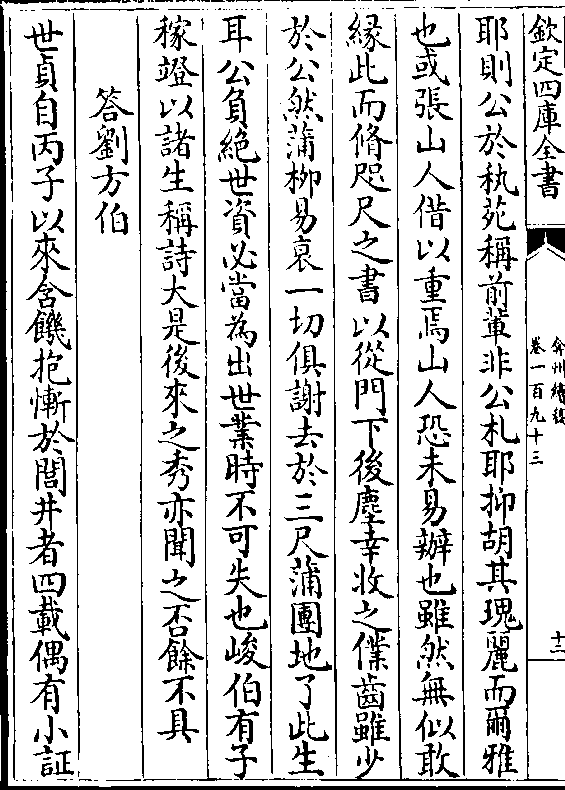 欽定四庫全書
弇州續稿
卷一百九十三
十二
耶則公於秇苑稱前輩非公札耶抑胡其瑰麗而爾雅
也或張山人借以重焉山人恐未易辦也雖然無似敢
縁此而脩咫尺之書以從門下後塵幸收之僕齒雖少
於公然蒲柳易衰一切俱謝去於三尺蒲團地了此生
耳公負絶世資必當為出世業時不可失也峻伯有子
稼䔲以諸生稱詩大是後來之秀亦聞之否餘不具
答劉方伯
世貞自丙子以來含饑抱慚於閭井者四載偶有小証